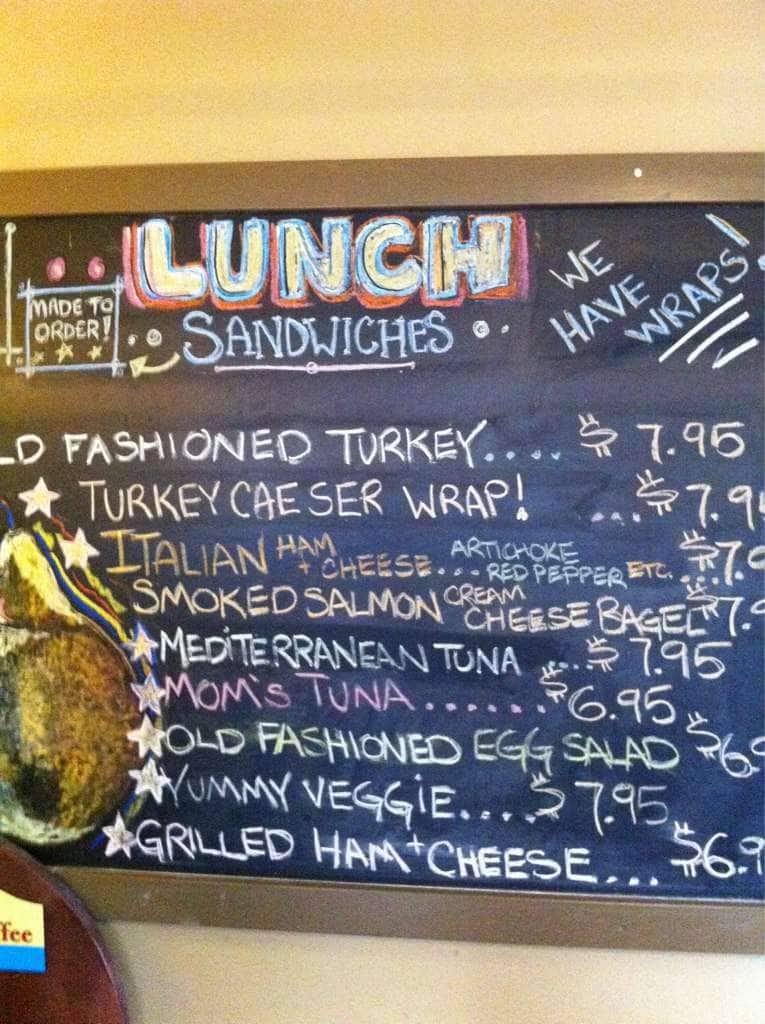 LUNCH
MADE TO
ORDER!
SANDWICHES
WE
HAVE
WRAPS!
LD FASHIONED TURKEY..... $7.95
TURKEY CAESER WRAP! ....$7.9
ITALIAN HAM + CHEESE... ARTICHOKE RED PEPPER ETC....$7.9
SMOKED SALMON CREAM CHEESE BAGEL $7.9
MEDITERRANEAN TUNA ....$7.95
MOM'S TUNA.......$6.95
OLD FASHIONED EGG SALAD $6.9
YUMMY VEGGIE....$7.95
GRILLED HAM + CHEESE... $6.9
ffee